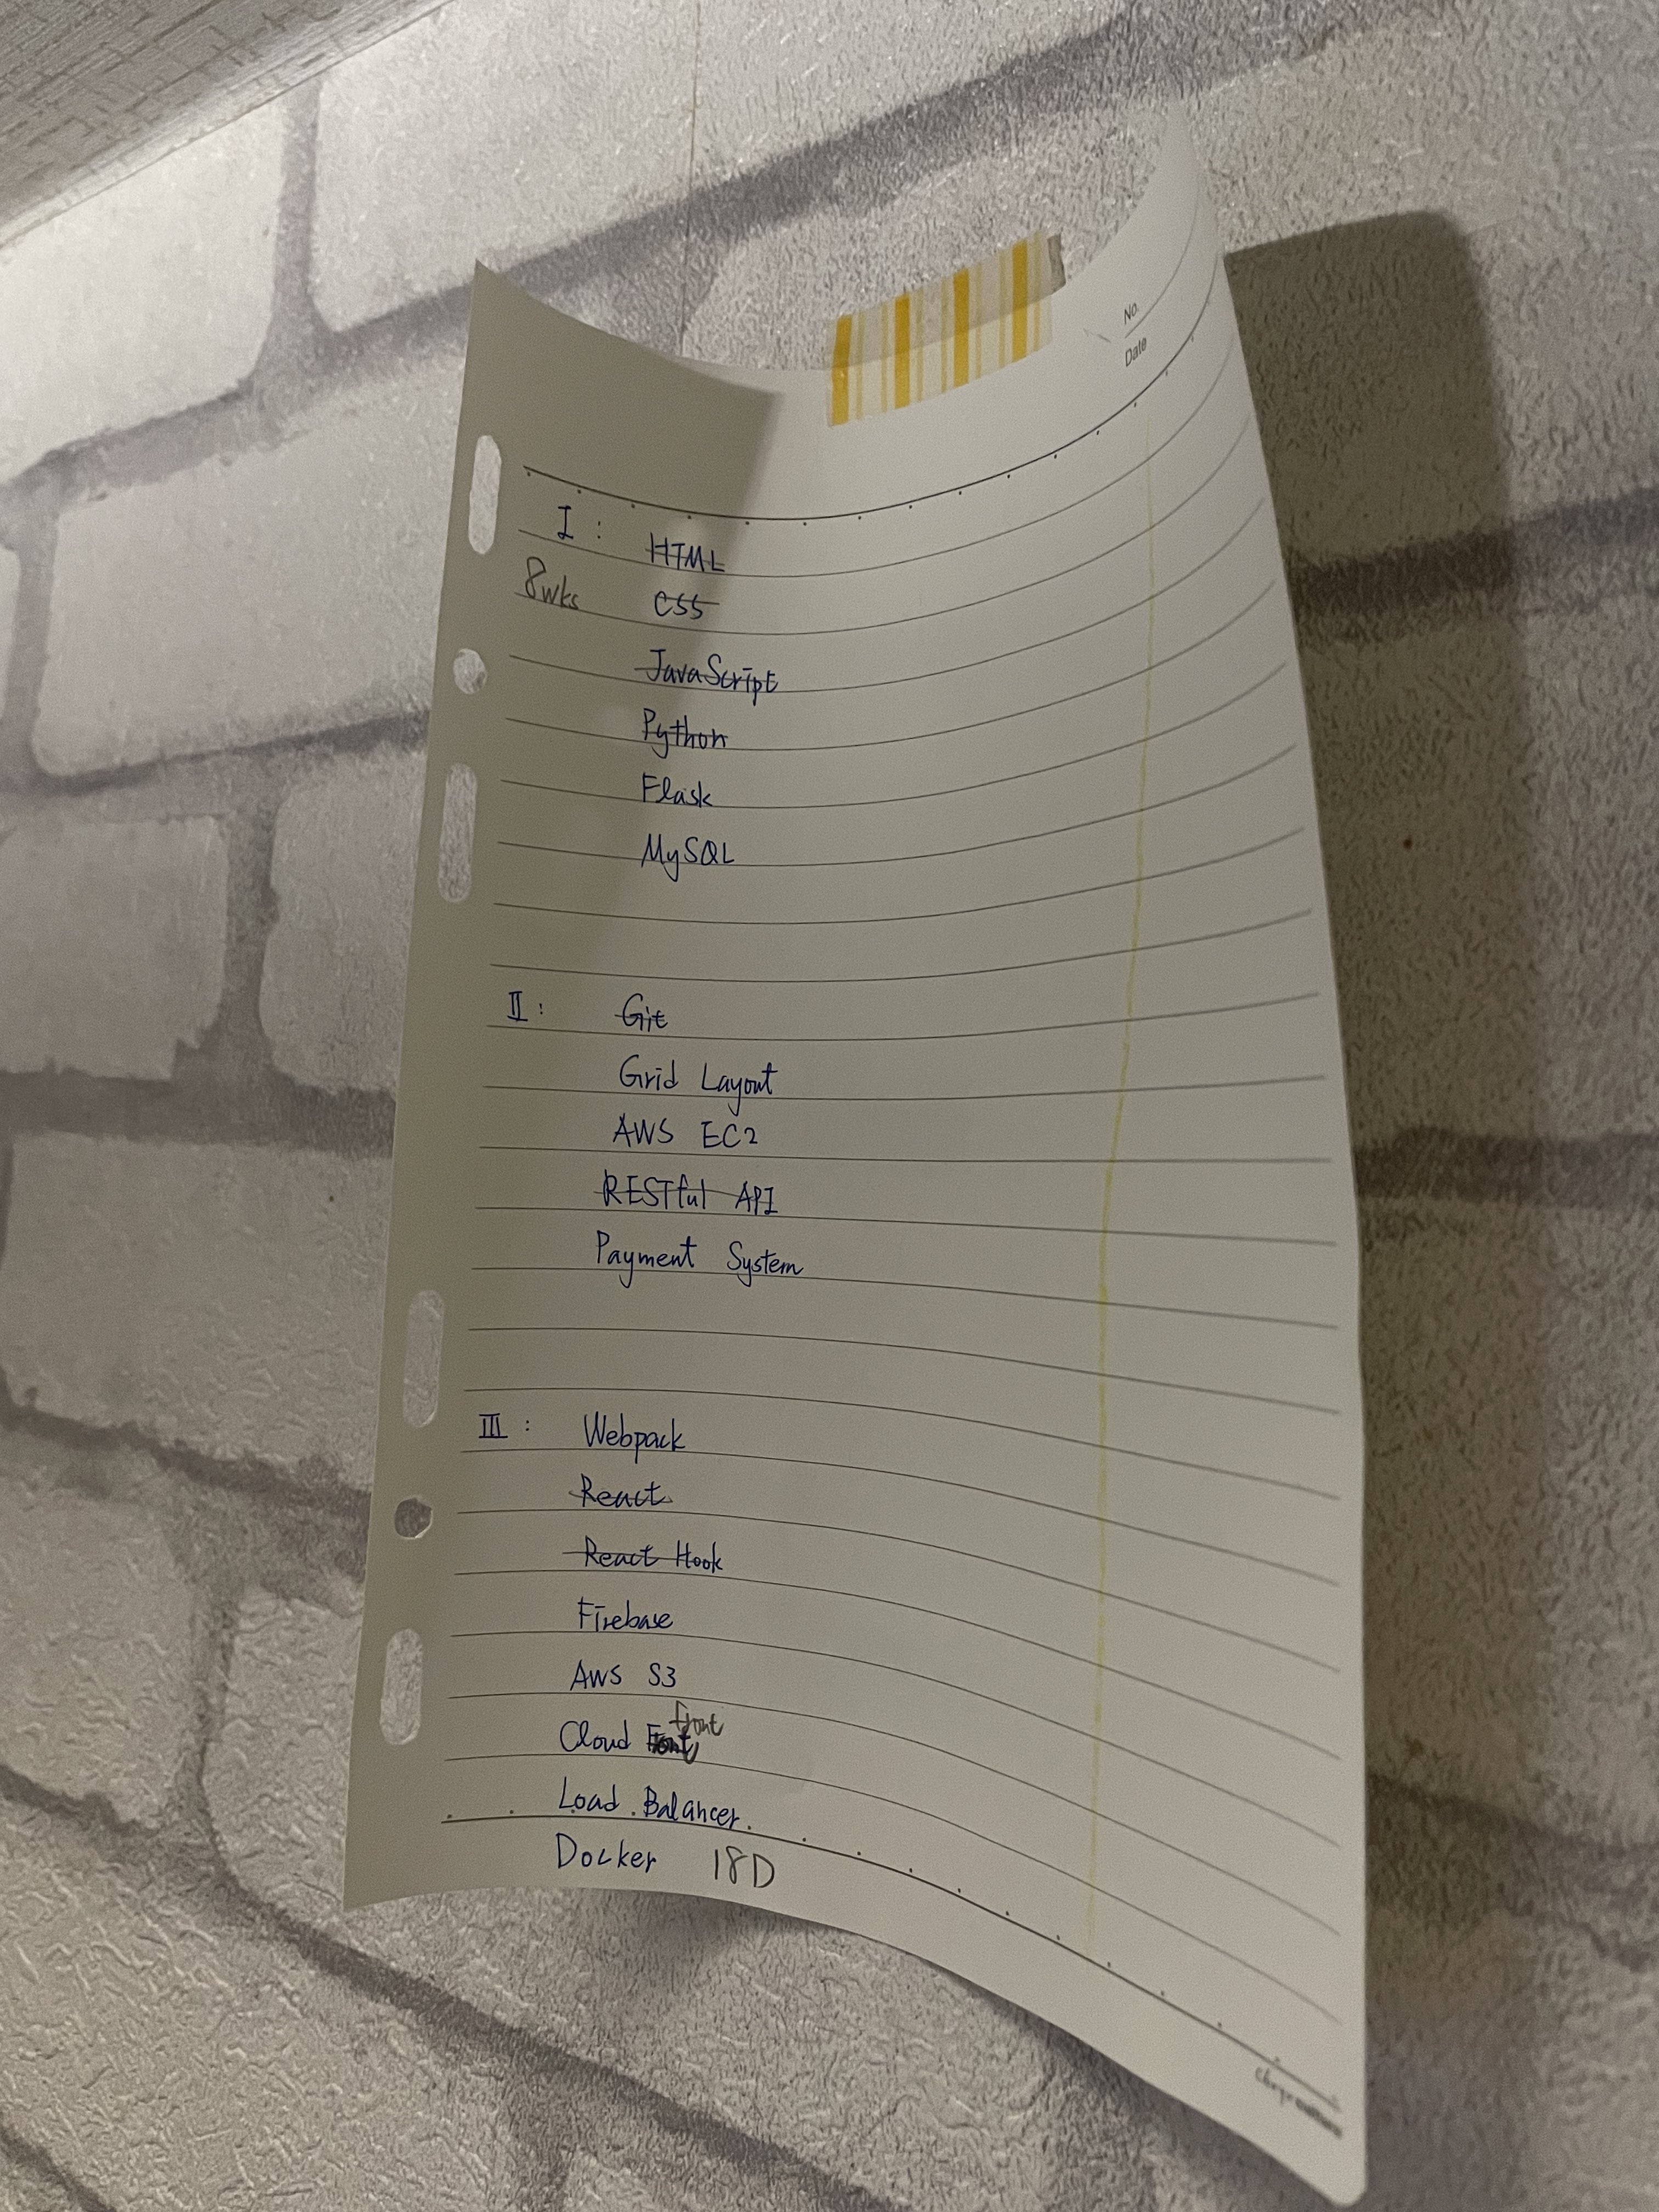 No.
Date
I : HTML
8wks CSS
JavaScript
Python
Flask
MySQL
II : Git
Grid Layout
AWS EC2
RESTful API
Payment System
III : Webpack
React
React Hook
Firebase
AWS S3
front
Cloud
Load Balancer
Docker 18D